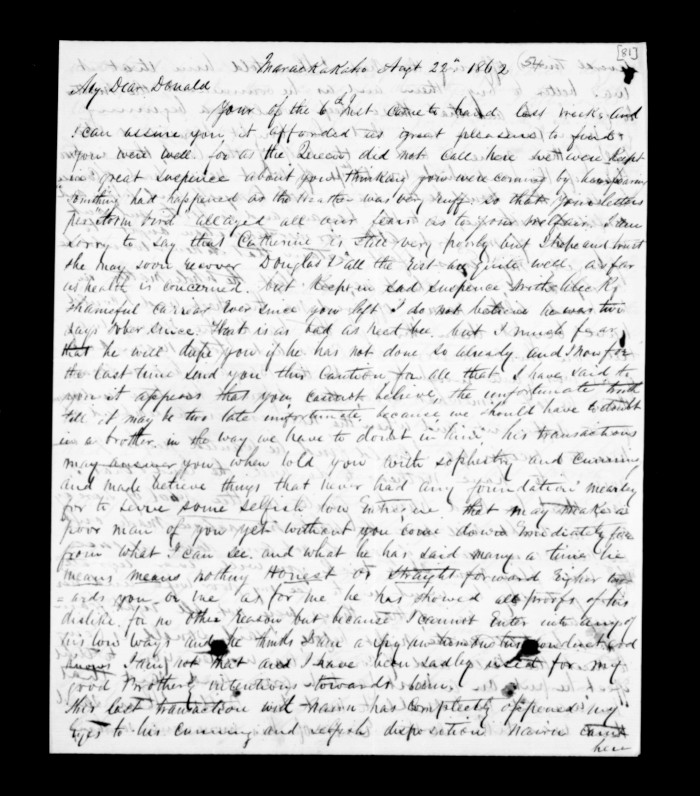 [81]
Maraekakaho Augt 22nd 1862
54
My Dear Donald
Your of the 6th inst came to hand last week and
I can assure you it afforded us great pleasure to find
you were well for as the Queen did not call here we were kept
in great suspence about you thinking you were coming by her &
something had happened as the weather was very ruff so that your letters
per storm bird allayed all our fears as to your welfair, I am
sorry to say that Catherine is still very poorly but I hope and trust
she may soon recover Douglas & all the rest are quite well as far
as health is concerned. but keept in sad suspence
shameful carrier Ever since you left I do not believe he was two
days Sober since. That is as bad as need bee. but I much fear
that he will dupe you if he has not done so already and I now for
the last time send you this caution for all that I have said to
you it appears that you cannot believe the unfortunate truth
till it may be too late unfortunate, because we should have to doubt
in a brother in the way we have to doubt in him, his transactions
may answer you when told you with sophestry and cunning
and made believe things that never had any foundation mearly
for to serve some selfish low Entrigue, that may make a
poor man of you yet without you come down Imediately for
from what I can see and what he has said many a time he
means means nothing Honest or Straight forward Eigher tow
=ards you or me as for me he has showed all proofs of his
dislike for no other reason but because I cannot Enter into any of
his low ways and he thinks I am a spy on his conduct God
knows I am not that and I have been sadley for my
good Brotherly intentions towards him,
this last transaction with Nairn has completely oppened my
Eyes to his cunning and selfish disposition Nairn came
here